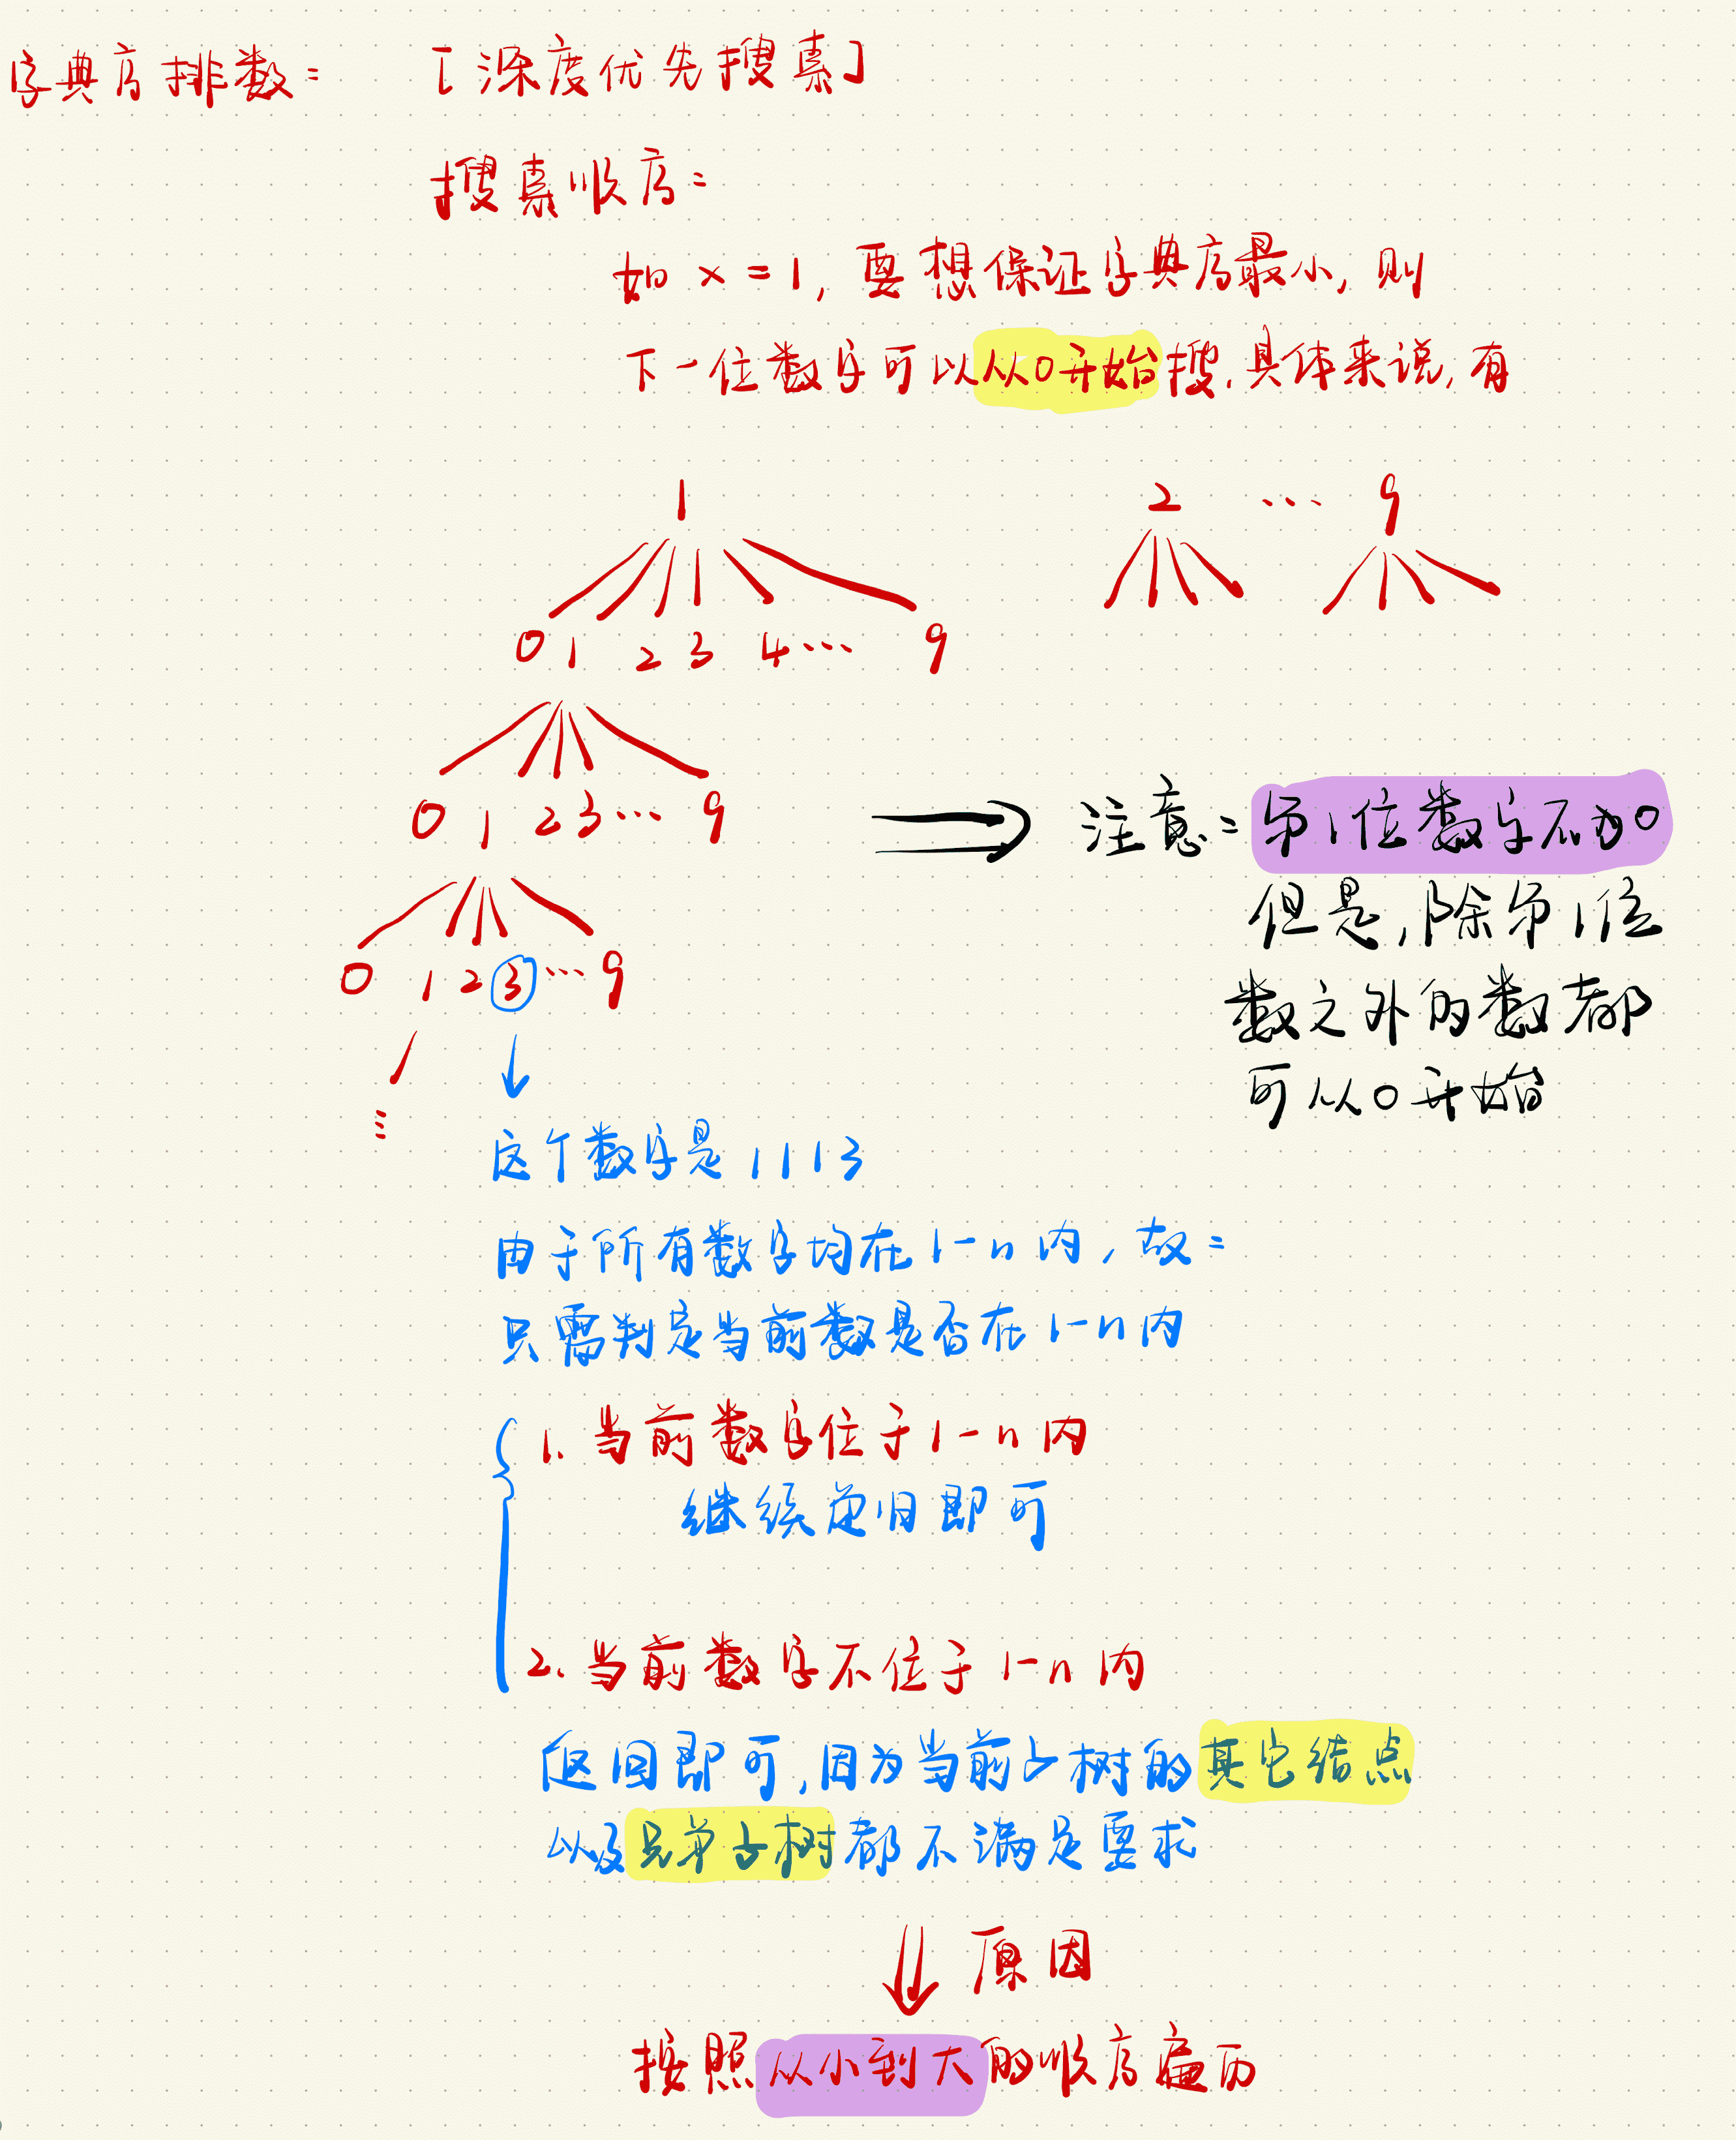 字典序排数： [深度优先搜索]
搜索顺序：
如 x = 1, 要想保证字典序最小, 则
下一位数字可以从0开始搜, 具体来说, 有
1 2 … 9
0 1 2 3 4 … 9
0 1 2 3 … 9
注意： 第1位数字不为0
但是, 除第1位
数之外的数都
可从0开始
0 1 2 3 … 9
⋮
这个数字是 1113
由于所有数字均在 1-n 内, 故：
只需判定当前数是否在 1-n 内
1. 当前数字位于 1-n 内
继续递归即可
2. 当前数字不位于 1-n 内
返回即可, 因为当前子树的其它结点
以及兄弟子树都不满足要求
原因
按照从小到大的顺序遍历